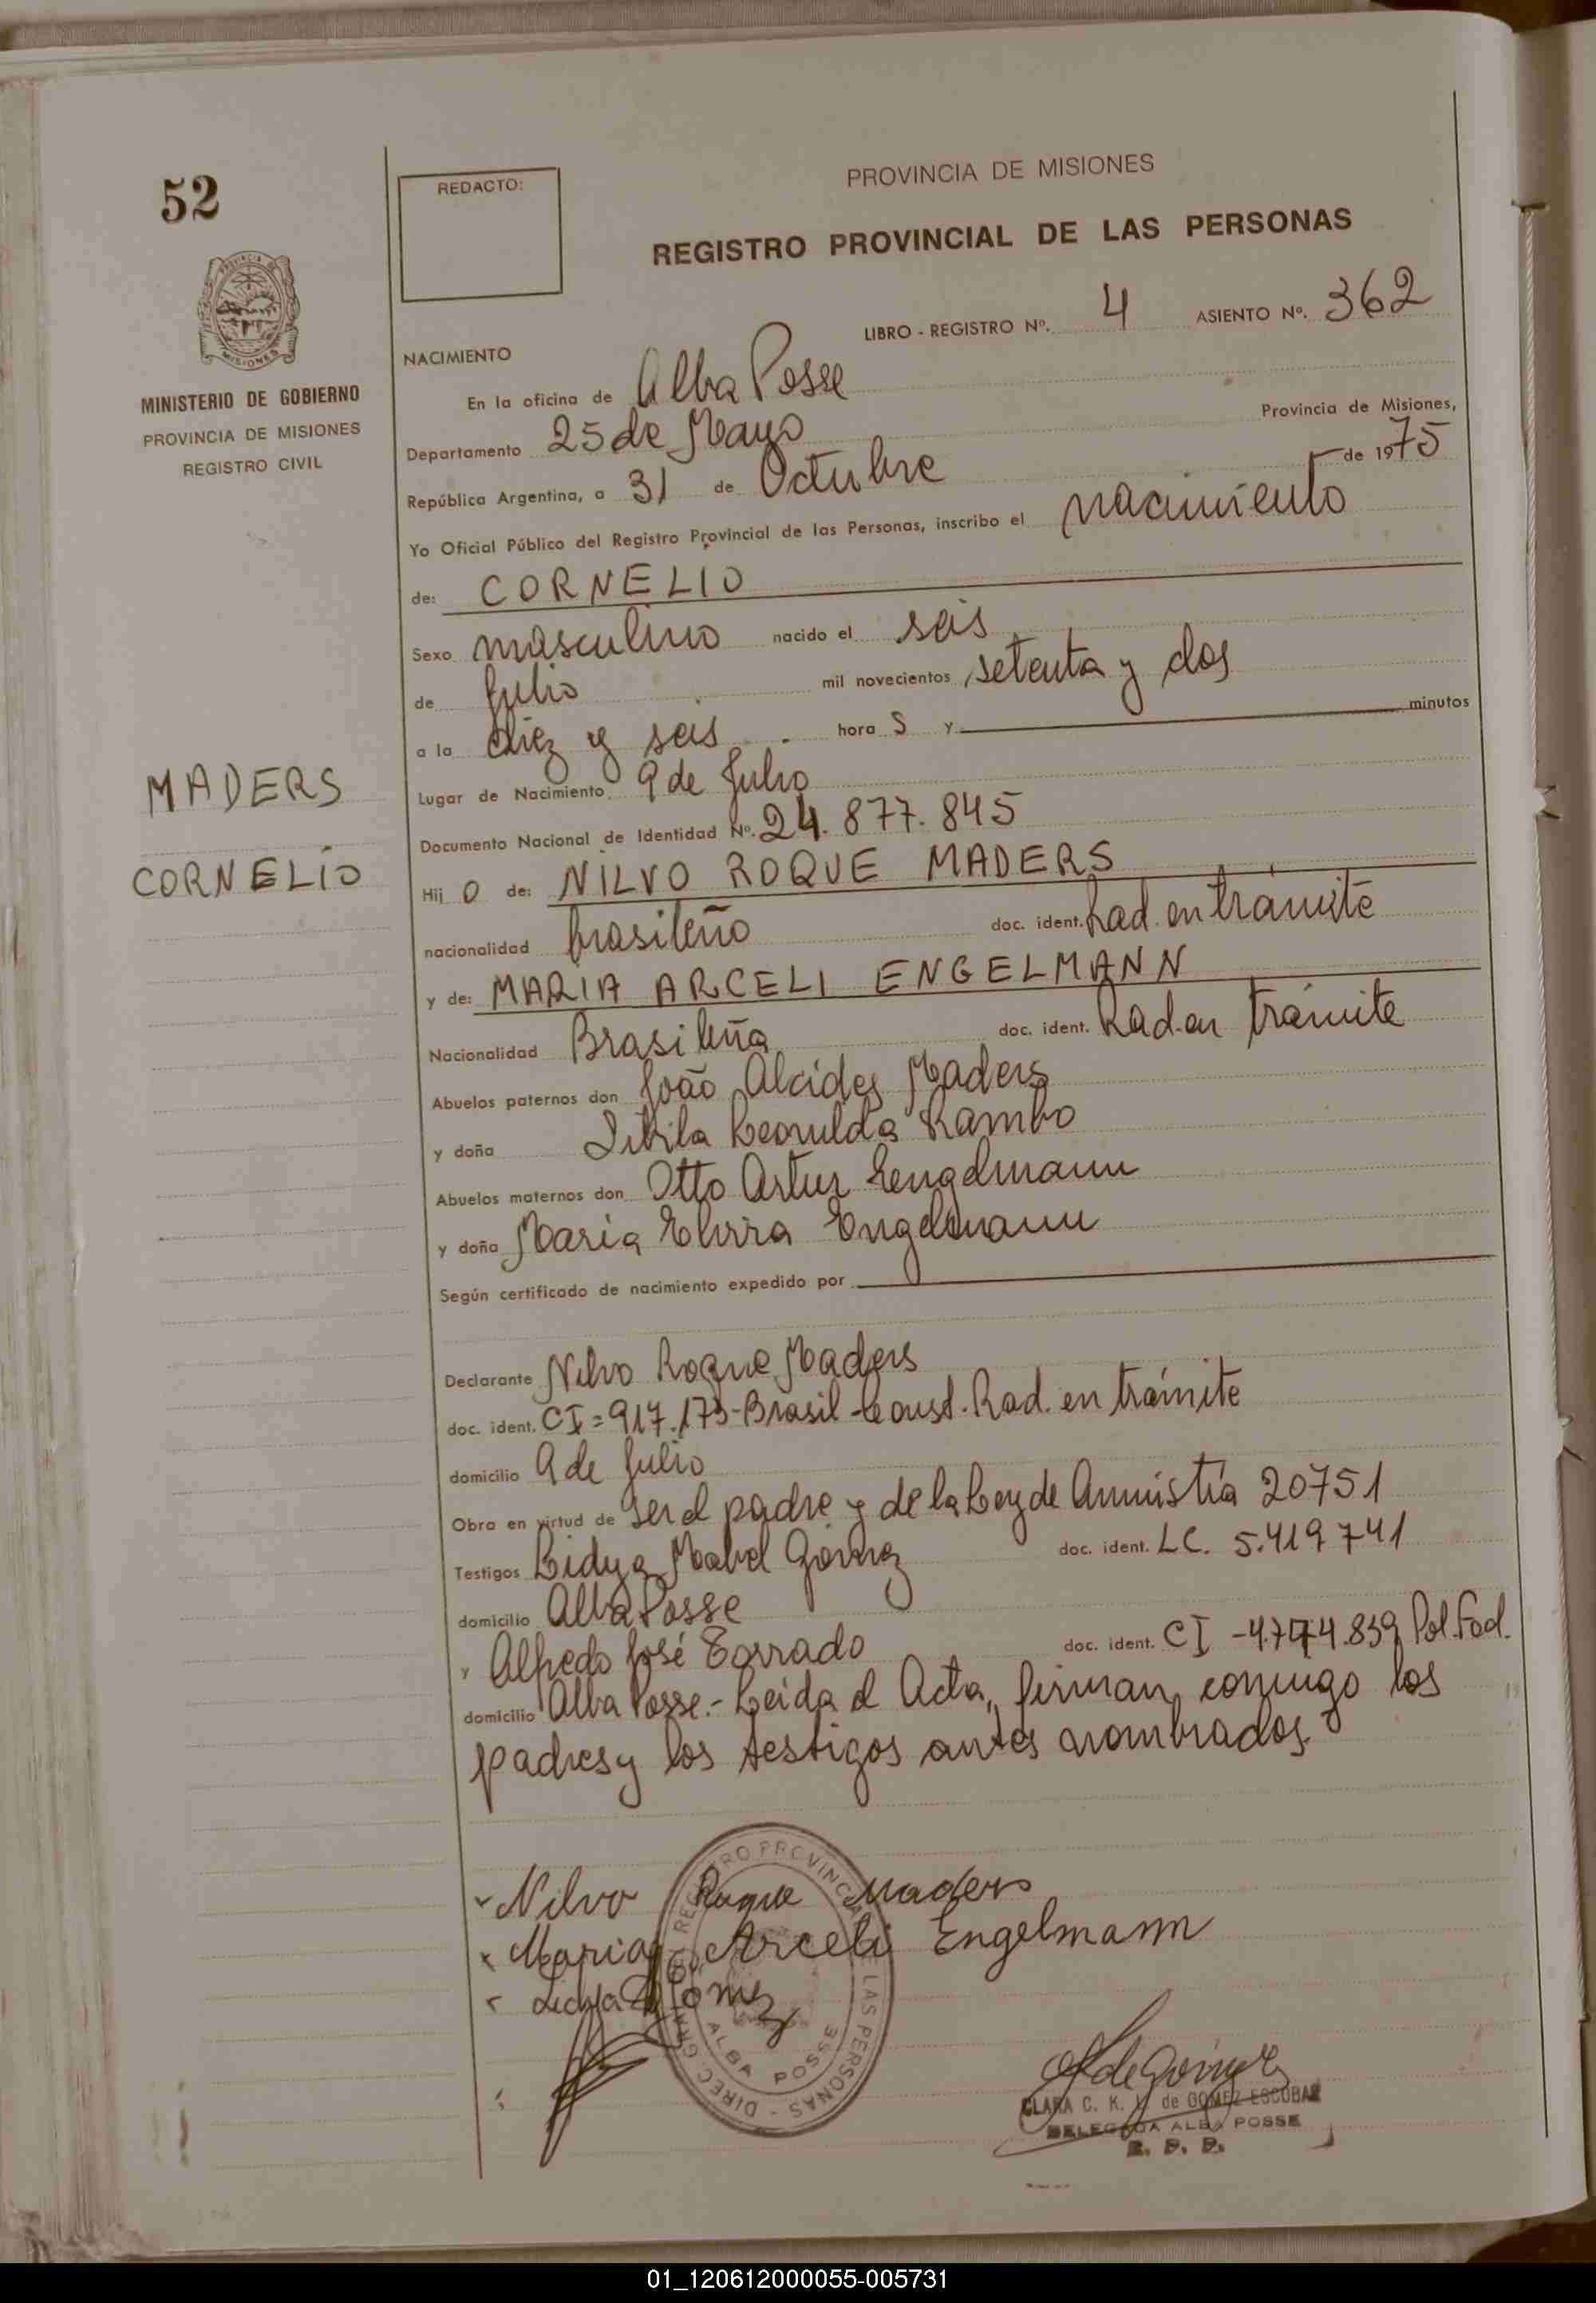 52
REDACTO:
PROVINCIA DE MISIONES
REGISTRO PROVINCIAL DE LAS PERSONAS
LIBRO - REGISTRO Nº. 4 ASIENTO Nº. 362
MISIONES
MINISTERIO DE GOBIERNO
PROVINCIA DE MISIONES
REGISTRO CIVIL
MADERS
CORNELIO
NACIMIENTO
En la oficina de Alba Posse
Departamento 25 de Mayo Provincia de Misiones,
República Argentina, a 31 de Octubre de 1975
Yo Oficial Público del Registro Provincial de las Personas, inscribo el nacimiento
de: CORNELIO
Sexo masculino nacido el seis
de Julio mil novecientos setenta y dos
a la diez y seis hora s y minutos
Lugar de Nacimiento 9 de Julio
Documento Nacional de Identidad Nº. 24.877.845
Hij o de: NILVO ROQUE MADERS
nacionalidad brasileño doc. ident. Rad. en trámite
y de: MARIA ARCELI ENGELMANN
Nacionalidad Brasileña doc. ident. Rad. en trámite
Abuelos paternos don João Alcides Maders
y doña Leonilda Rambo
Abuelos maternos don Otto Artur Engelmann
y doña Maria Elvira Engelmann
Según certificado de nacimiento expedido por
Declarante Nilvo Roque Maders
doc. ident. CI = 917.173-Brasil - Const. Rad. en trámite
domicilio 9 de Julio
Obra en virtud de ser el padre y de la Ley de Amnistía 20751
Testigos Lidya Mabel Gómez doc. ident. LC. 5.419741
domicilio Alba Posse
y Alfredo José Torrado doc. ident. CI Pol. Fed.
domicilio Alba Posse.- Leida el Acta, firman conmigo los
padres y los testigos antes nombrados.
Nilvo Roque Maders
Maria Arceli Engelmann
Lidya Gomez
DIREC. GRAL. REGISTRO PROVINCIAL DE LAS PERSONAS - ALBA POSSE
CLARA C. K. de GOMEZ ESCOBAR
DELEGADA ALBA POSSE
R. P. P.
01_120612000055-005731